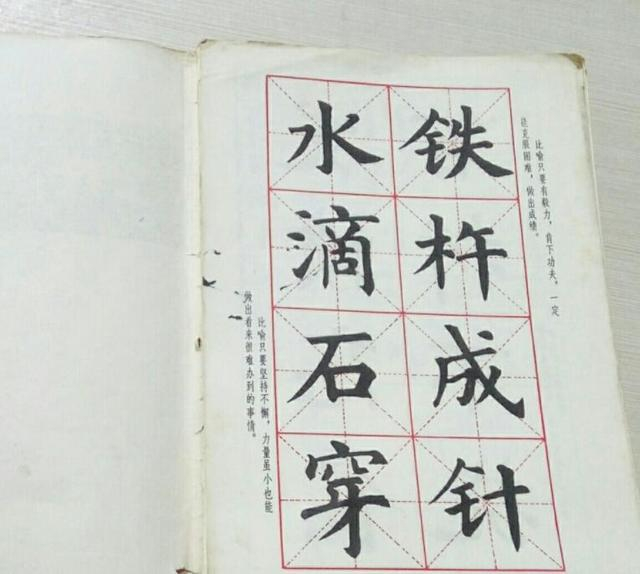 铁杵成针
比喻只要有毅力，肯下功夫，一定
能克服困难，做出成绩。
水滴石穿
比喻只要坚持不懈，力量虽小也能
做出看来很难办到的事情。